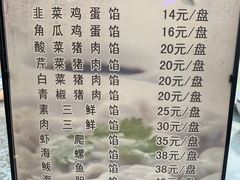 韭菜鸡蛋馅 14元/盘
角瓜鸡蛋馅 16元/盘
酸菜猪肉馅 20元/盘
芹菜猪肉馅 20元/盘
白菜猪肉馅 20元/盘
青椒猪肉馅 20元/盘
素三鲜馅 25元/盘
肉三鲜馅 30元/盘
虾爬馅 35元/盘
海螺馅 38元/盘
鲅鱼馅 38元/盘